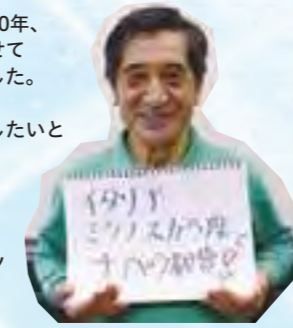 0年、
せて
した。
したいと
イタリア
ミラノ スカラ座
ナベの